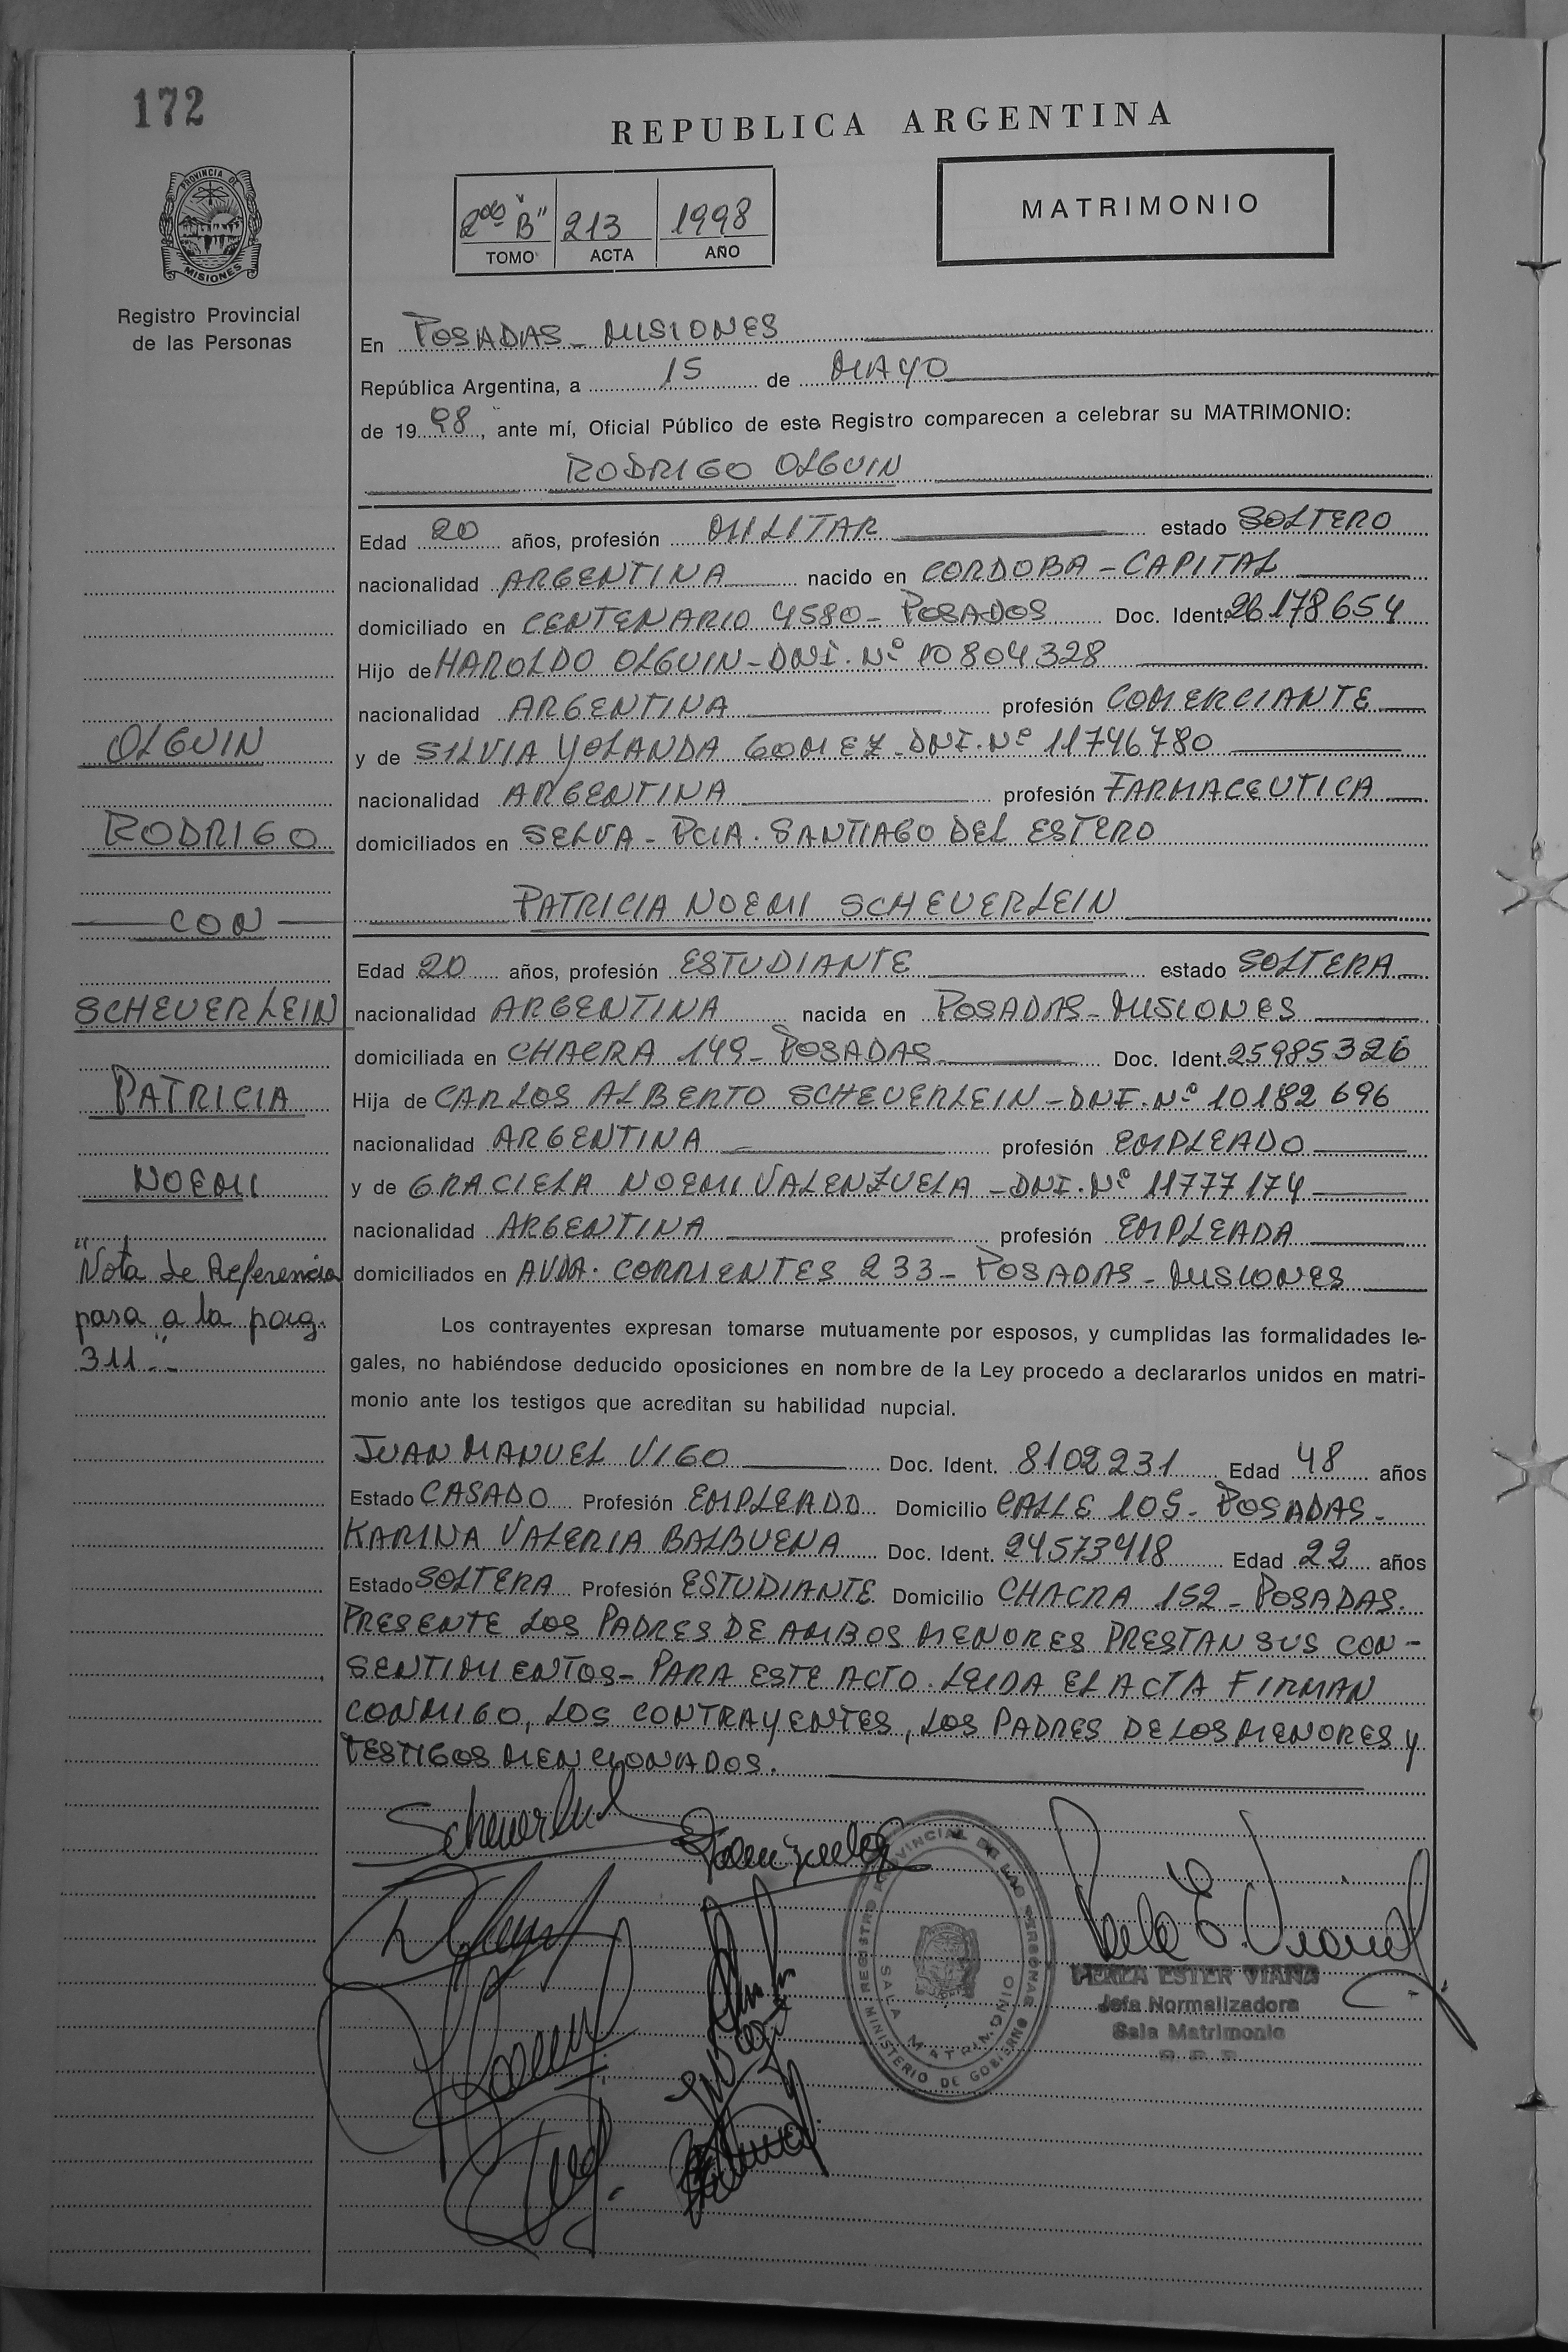 172
REPUBLICA ARGENTINA
PROVINCIA DE
MISIONES
Registro Provincial
de las Personas
2do "B" 213 1998
TOMO ACTA AÑO
MATRIMONIO
En POSADAS - MISIONES
República Argentina, a 15 de MAYO
de 19 98, ante mí, Oficial Público de este Registro comparecen a celebrar su MATRIMONIO:
RODRIGO OLGUIN
Edad 20 años, profesión MILITAR estado SOLTERO
nacionalidad ARGENTINA nacido en CORDOBA - CAPITAL
domiciliado en CENTENARIO 4580 - POSADOS Doc. Ident. 26178654
Hijo de HAROLDO OLGUIN - DNI. Nº 10804328
nacionalidad ARGENTINA profesión COMERCIANTE
y de SILVIA YOLANDA GOMEZ - DNI. Nº 11746780
nacionalidad ARGENTINA profesión FARMACEUTICA
domiciliados en SELVA - PCIA. SANTIAGO DEL ESTERO
PATRICIA NOEMI SCHEUERLEIN
Edad 20 años, profesión ESTUDIANTE estado SOLTERA
nacionalidad ARGENTINA nacida en POSADAS - MISIONES
domiciliada en CHACRA 149 - POSADAS Doc. Ident. 25985326
Hija de CARLOS ALBERTO SCHEUERLEIN - DNI. Nº 10182696
nacionalidad ARGENTINA profesión EMPLEADO
y de GRACIELA NOEMI VALENZUELA - DNI. Nº 11777174
nacionalidad ARGENTINA profesión EMPLEADA
domiciliados en AVDA. CORRIENTES 233 - POSADAS - MISIONES
OLGUIN
RODRIGO
CON
SCHEUERLEIN
PATRICIA
NOEMI
"Nota de Referencia
pasa a la pag.
311..
Los contrayentes expresan tomarse mutuamente por esposos, y cumplidas las formalidades le-
gales, no habiéndose deducido oposiciones en nombre de la Ley procedo a declararlos unidos en matri-
monio ante los testigos que acreditan su habilidad nupcial.
JUAN MANUEL VIGO Doc. Ident. 8102231 Edad 48 años
Estado CASADO Profesión EMPLEADO Domicilio CALLE 105 - POSADAS -
KARINA VALERIA BALBUENA Doc. Ident. 24573418 Edad 22 años
Estado SOLTERA Profesión ESTUDIANTE Domicilio CHACRA 152 - POSADAS.
PRESENTE LOS PADRES DE AMBOS MENORES PRESTAN SUS CON-
SENTIMIENTOS - PARA ESTE ACTO. LEIDA EL ACTA FIRMAN
CONMIGO, LOS CONTRAYENTES, LOS PADRES DE LOS MENORES Y
TESTIGOS MENCIONADOS.
REGISTRO PROVINCIAL DE LAS PERSONAS
SALA MATRIMONIO
MINISTERIO DE GOBIERNO
ESTER VIANA
Jefa Normalizadora
Sala Matrimonio